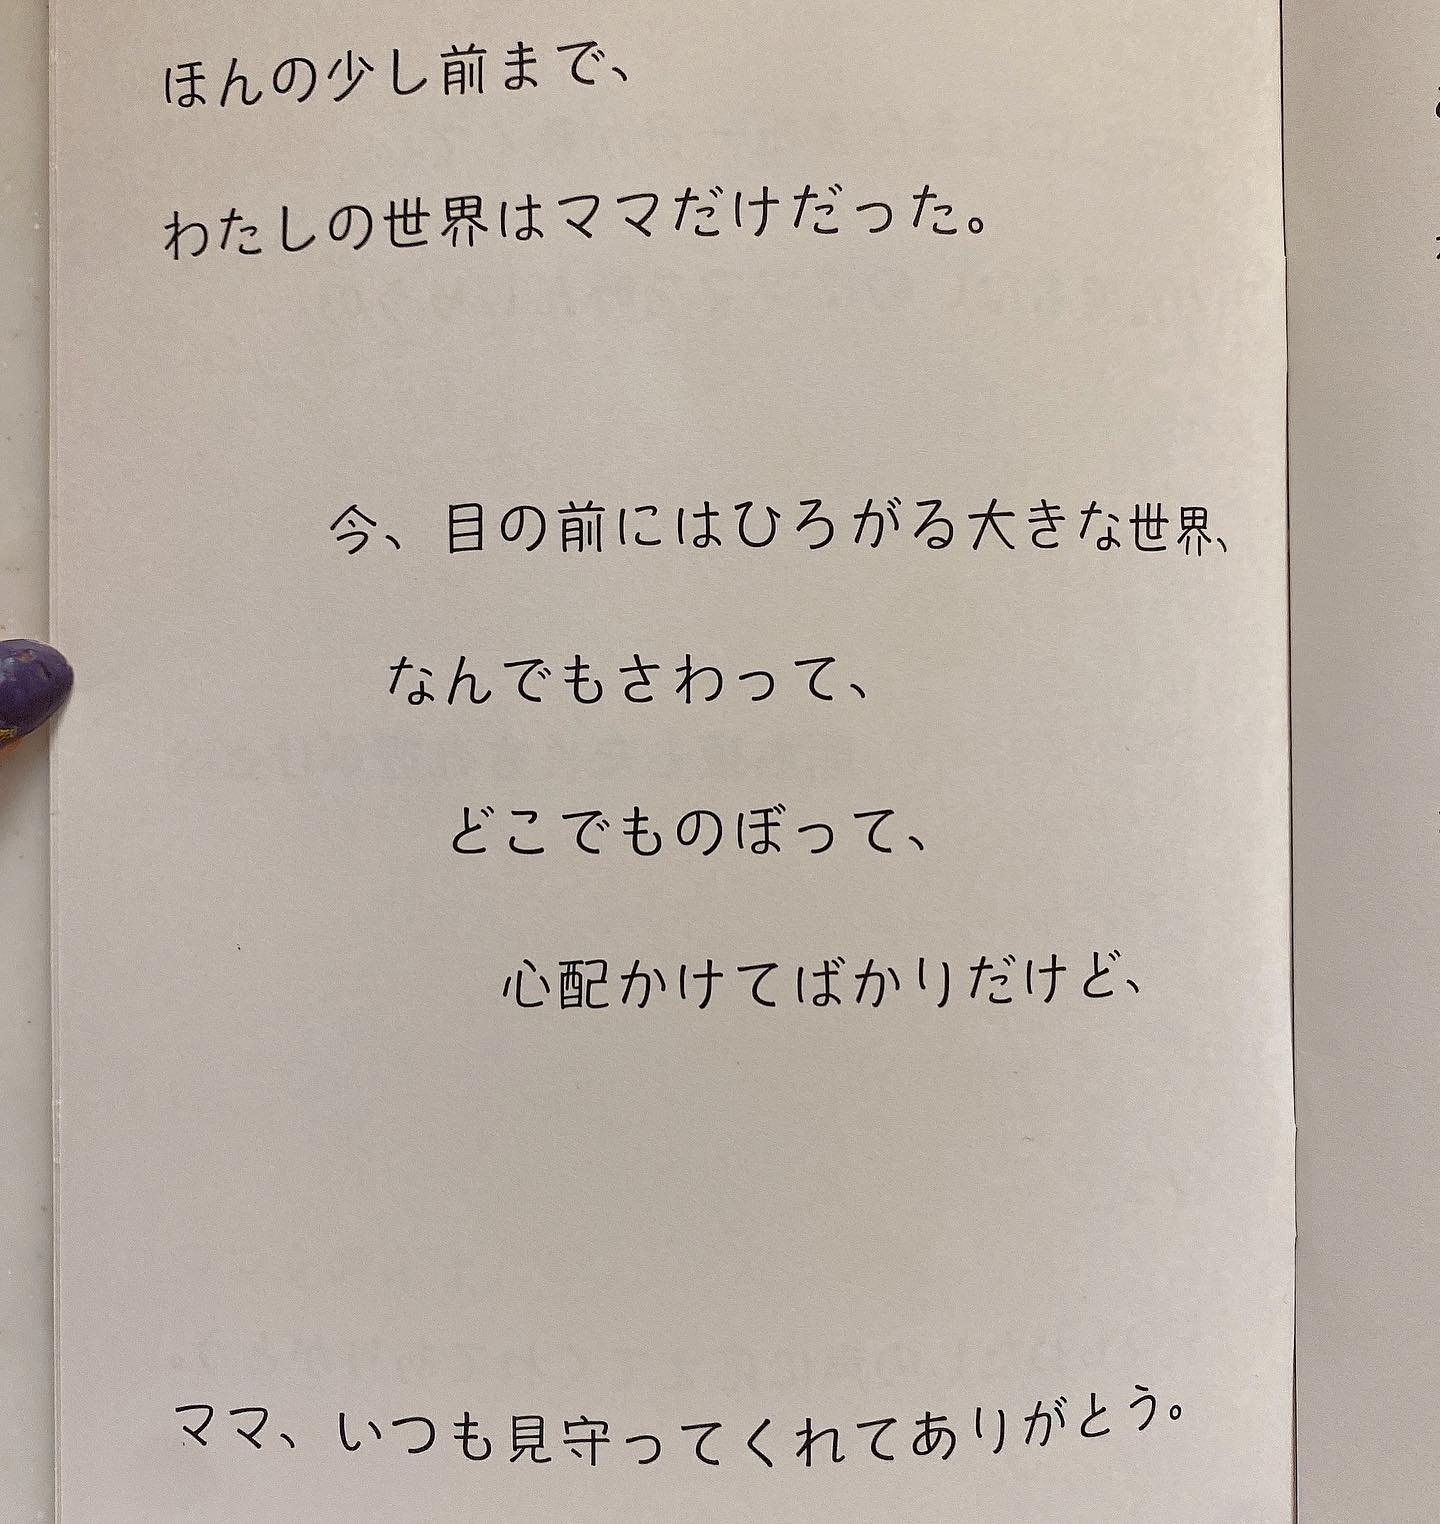 ほんの少し前まで、
わたしの世界はママだけだった。
今、目の前にはひろがる大きな世界、
なんでもさわって、
どこでものぼって、
心配かけてばかりだけど、
ママ、いつも見守ってくれてありがとう。